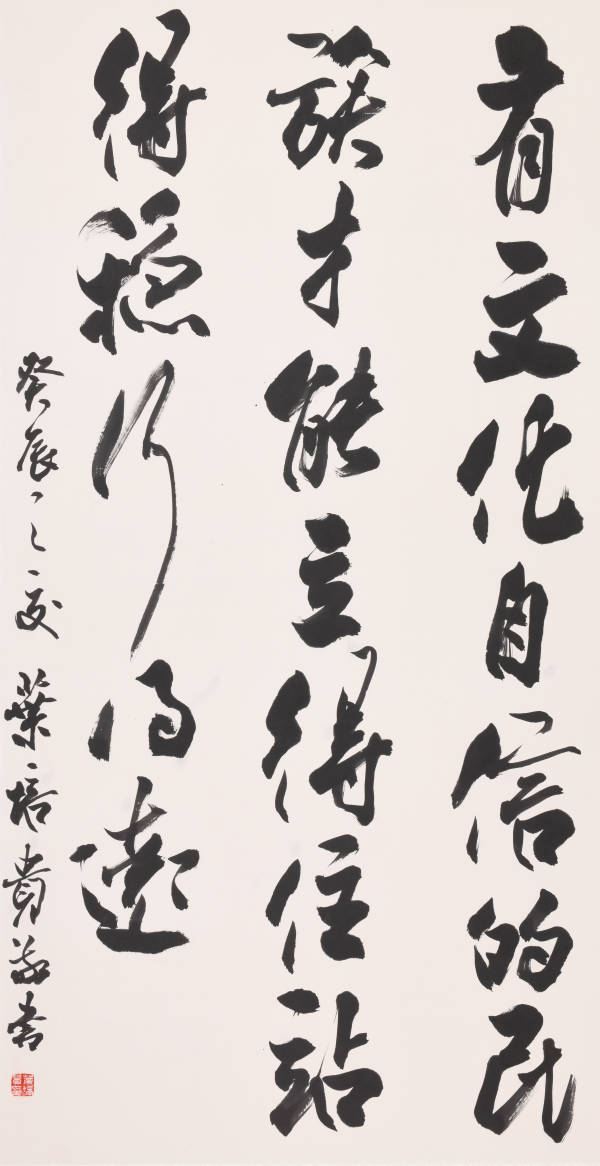 有文化自信的民
族才能立得住站
得稳行得远
癸辰之交 葉培貴敬書